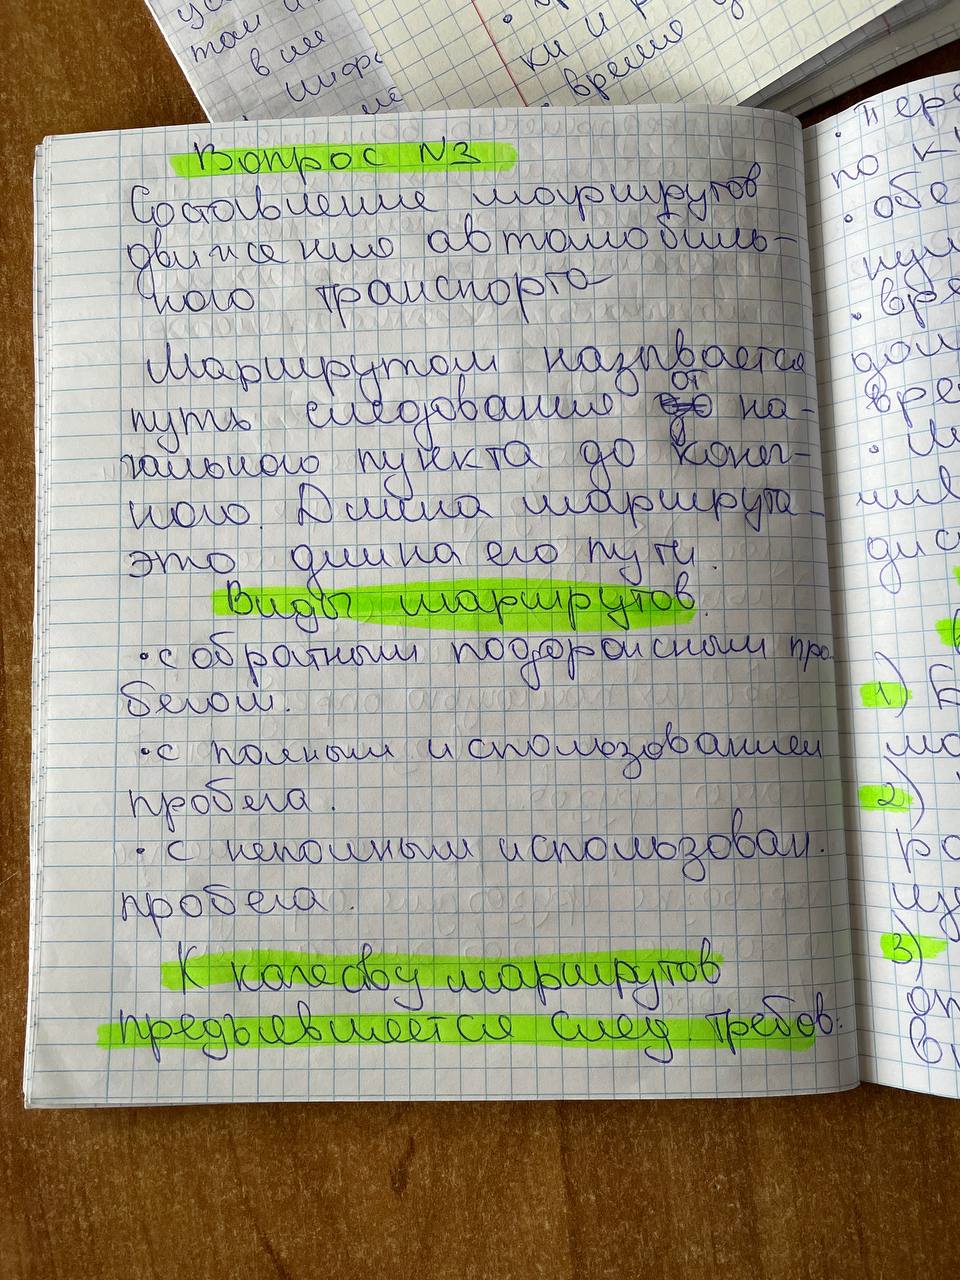 том
в ши
шифр
ки и
время
Вопрос N3
Составление маршрутов
движению автомобиль-
ного транспорта
Маршрутом называется
путь следования от на-
чального пункта до конеч-
ного. Длина маршрута-
это длина его пути.
Виды маршрутов.
• с обратным подорожным про
бегом.
• с полным использованием
пробега.
• с неполным использован.
пробега.
К качеству маршрутов
предъявляется след. требов:
• пере
по к
• обе
пун
• вре
дол
вре
дис
1) Б
ма
2)
ра
из
3)
оп
вр